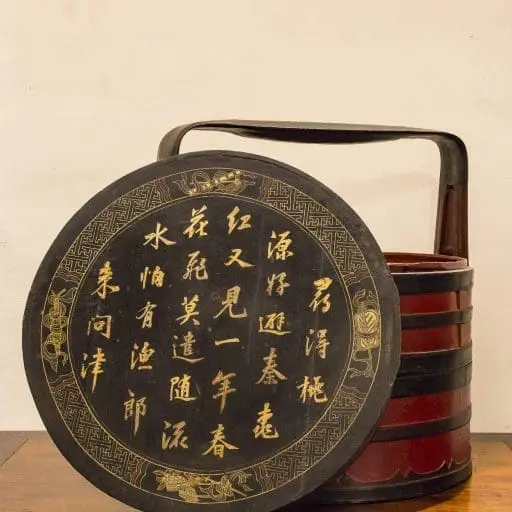 尋得桃
源好避秦桃
紅又見一年春
花飛莫遣随流
水怕有漁郎
來问津